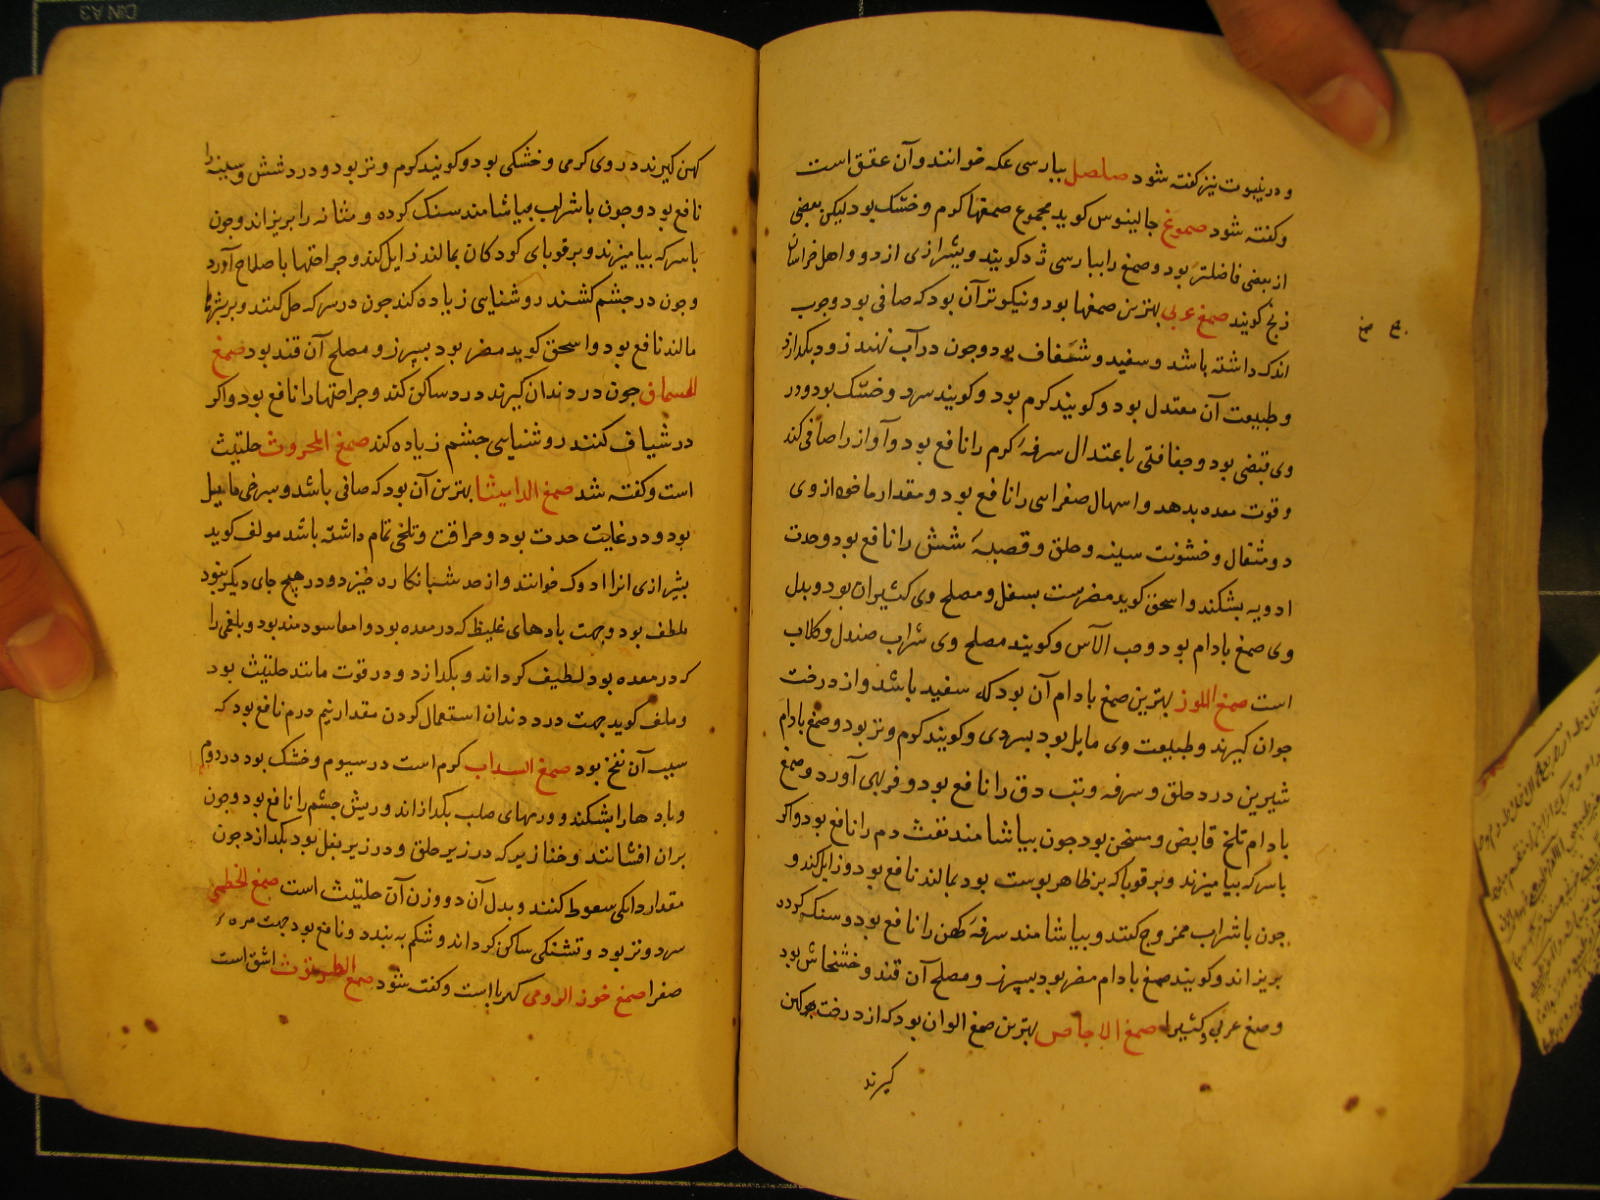 و در ینبوت نیز گفته شود صلصل بپارسی عکه خوانند و آن عقعق است
و گفته شود صموغ جالینوس کوید مجموع صمغها کرم و خشک بود لیکن بعضی
از بعضی فاضلتر بود و صمغ را بپارسی ژد کویند و بشیرازی ازدو و اهل خراسان
زنج کویند صمغ عربی بهترین صمغها بود و نیکوتر آن بود که صافی بود و چوب
اندک داشته باشد و سفید و شفاف بود و چون در آب نهند زود بکدازد
و طبیعت آن معتدل بود و کویند کرم بود و کویند سرد و خشک بود و در
وی قبضی بود و جفافتی باعتدال سرفهٔ کرم را نافع بود و آواز را صافی کند
و قوت معده بدهد و اسهال صفرایی را نافع بود و مقدار ماخوذ از وی
دو مثقال و خشونت سینه و حلق و قصبهٔ شش را نافع بود و حدت
ادویه بشکند و اسحق کوید مضرست بسفل و مصلح وی کثیرا بود و بدل
وی صمغ بادام بود و حب الآس و کویند مصلح وی شراب صندل و کلاب
است صمغ اللوز بهترین صمغ بادام آن بود که سفید باشد و از درخت
جوان کیرند و طبیعت وی مایل بود بسردی و کویند کرم و تر بود و صمغ بادام
شیرین درد حلق و سرفه و تب دق را نافع بود و فربهی آورد و صمغ
بادام تلخ قابض و مسخن بود چون بیاشامند نفث دم را نافع بود و اکر
با سرکه بیامیزند و بر قوبا که بر ظاهر پوست بود بمالند نافع بود و زایل کند و
چون با شراب ممزوج کنند و بیاشامند سرفهٔ کهن را نافع بود و سنک کرده
بریزاند و کویند صمغ بادام مضر بود بسپرز و مصلح آن قند و خشخاش بود
و صمغ عربی و کثیرا صمغ الاجاص بهترین صمغ الوان بود که از درخت کهن
کیرند
کهن کیرند در وی کرمی و خشکی بود و کویند کرم و تر بود و درد شش و سینه را
نافع بود و چون با شراب بیاشامند سنک کرده و مثانه را بریزاند و چون
با سرکه بیامیزند و بر قوبای کودکان بمالند زایل کند و جراحتها باصلاح آورد
و چون در چشم کشند روشنایی زیاده کند چون در سرکه حل کنند و بر
مالند نافع بود و اسحق کوید مضر بود بسپرز و مصلح آن قند بود صمغ
السماق چون در دندان کیرند درد ساکن کند و جراحتها را نافع بود و اکر
در شیاف کنند روشنایی چشم زیاده کند صمغ المحروث حلتیث
است و کفته شد صمغ الدامیثا بهترین آن بود که صافی باشد و بسرخی مایل
بود و در غایت حدت بود و حراقت و تلخی تمام داشته باشد مولف کوید
بشیرازی انرا ادوک خوانند و از حد شبانکاره خیزد و در هیچ جای دیکر نبود
ملطف بود و جهت بادهای غلیظ که در معده بود و امعا سودمند بود و بلغمی را
که در معده بود لطیف کرداند و بکدازد و در قوت مانند حلتیث بود
و ملف کوید جهت درد دندان استعمال کردن مقدار نیم درم نافع بود که
سبب آن نفخ بود صمغ السداب کرم است در سیوم و خشک بود در دوم
و بادها را بشکند و ورمهای صلب بکدازاند و ریش چشم را نافع بود و چون
بران افشانند و خنازیر که در زیر حلق و در زیر بغل بود بکدازد چون
مقدار دانکی سعوط کنند و بدل آن دو وزن آن حلتیث است صمغ الخطمی
سرد و تر بود و تشنکی ساکن کرداند و شکم به بندد و نافع بود جهت مرهء
صفرا صمغ خوز الرومی کهربا است و کفته شود صمغ الطرثوث اشق است